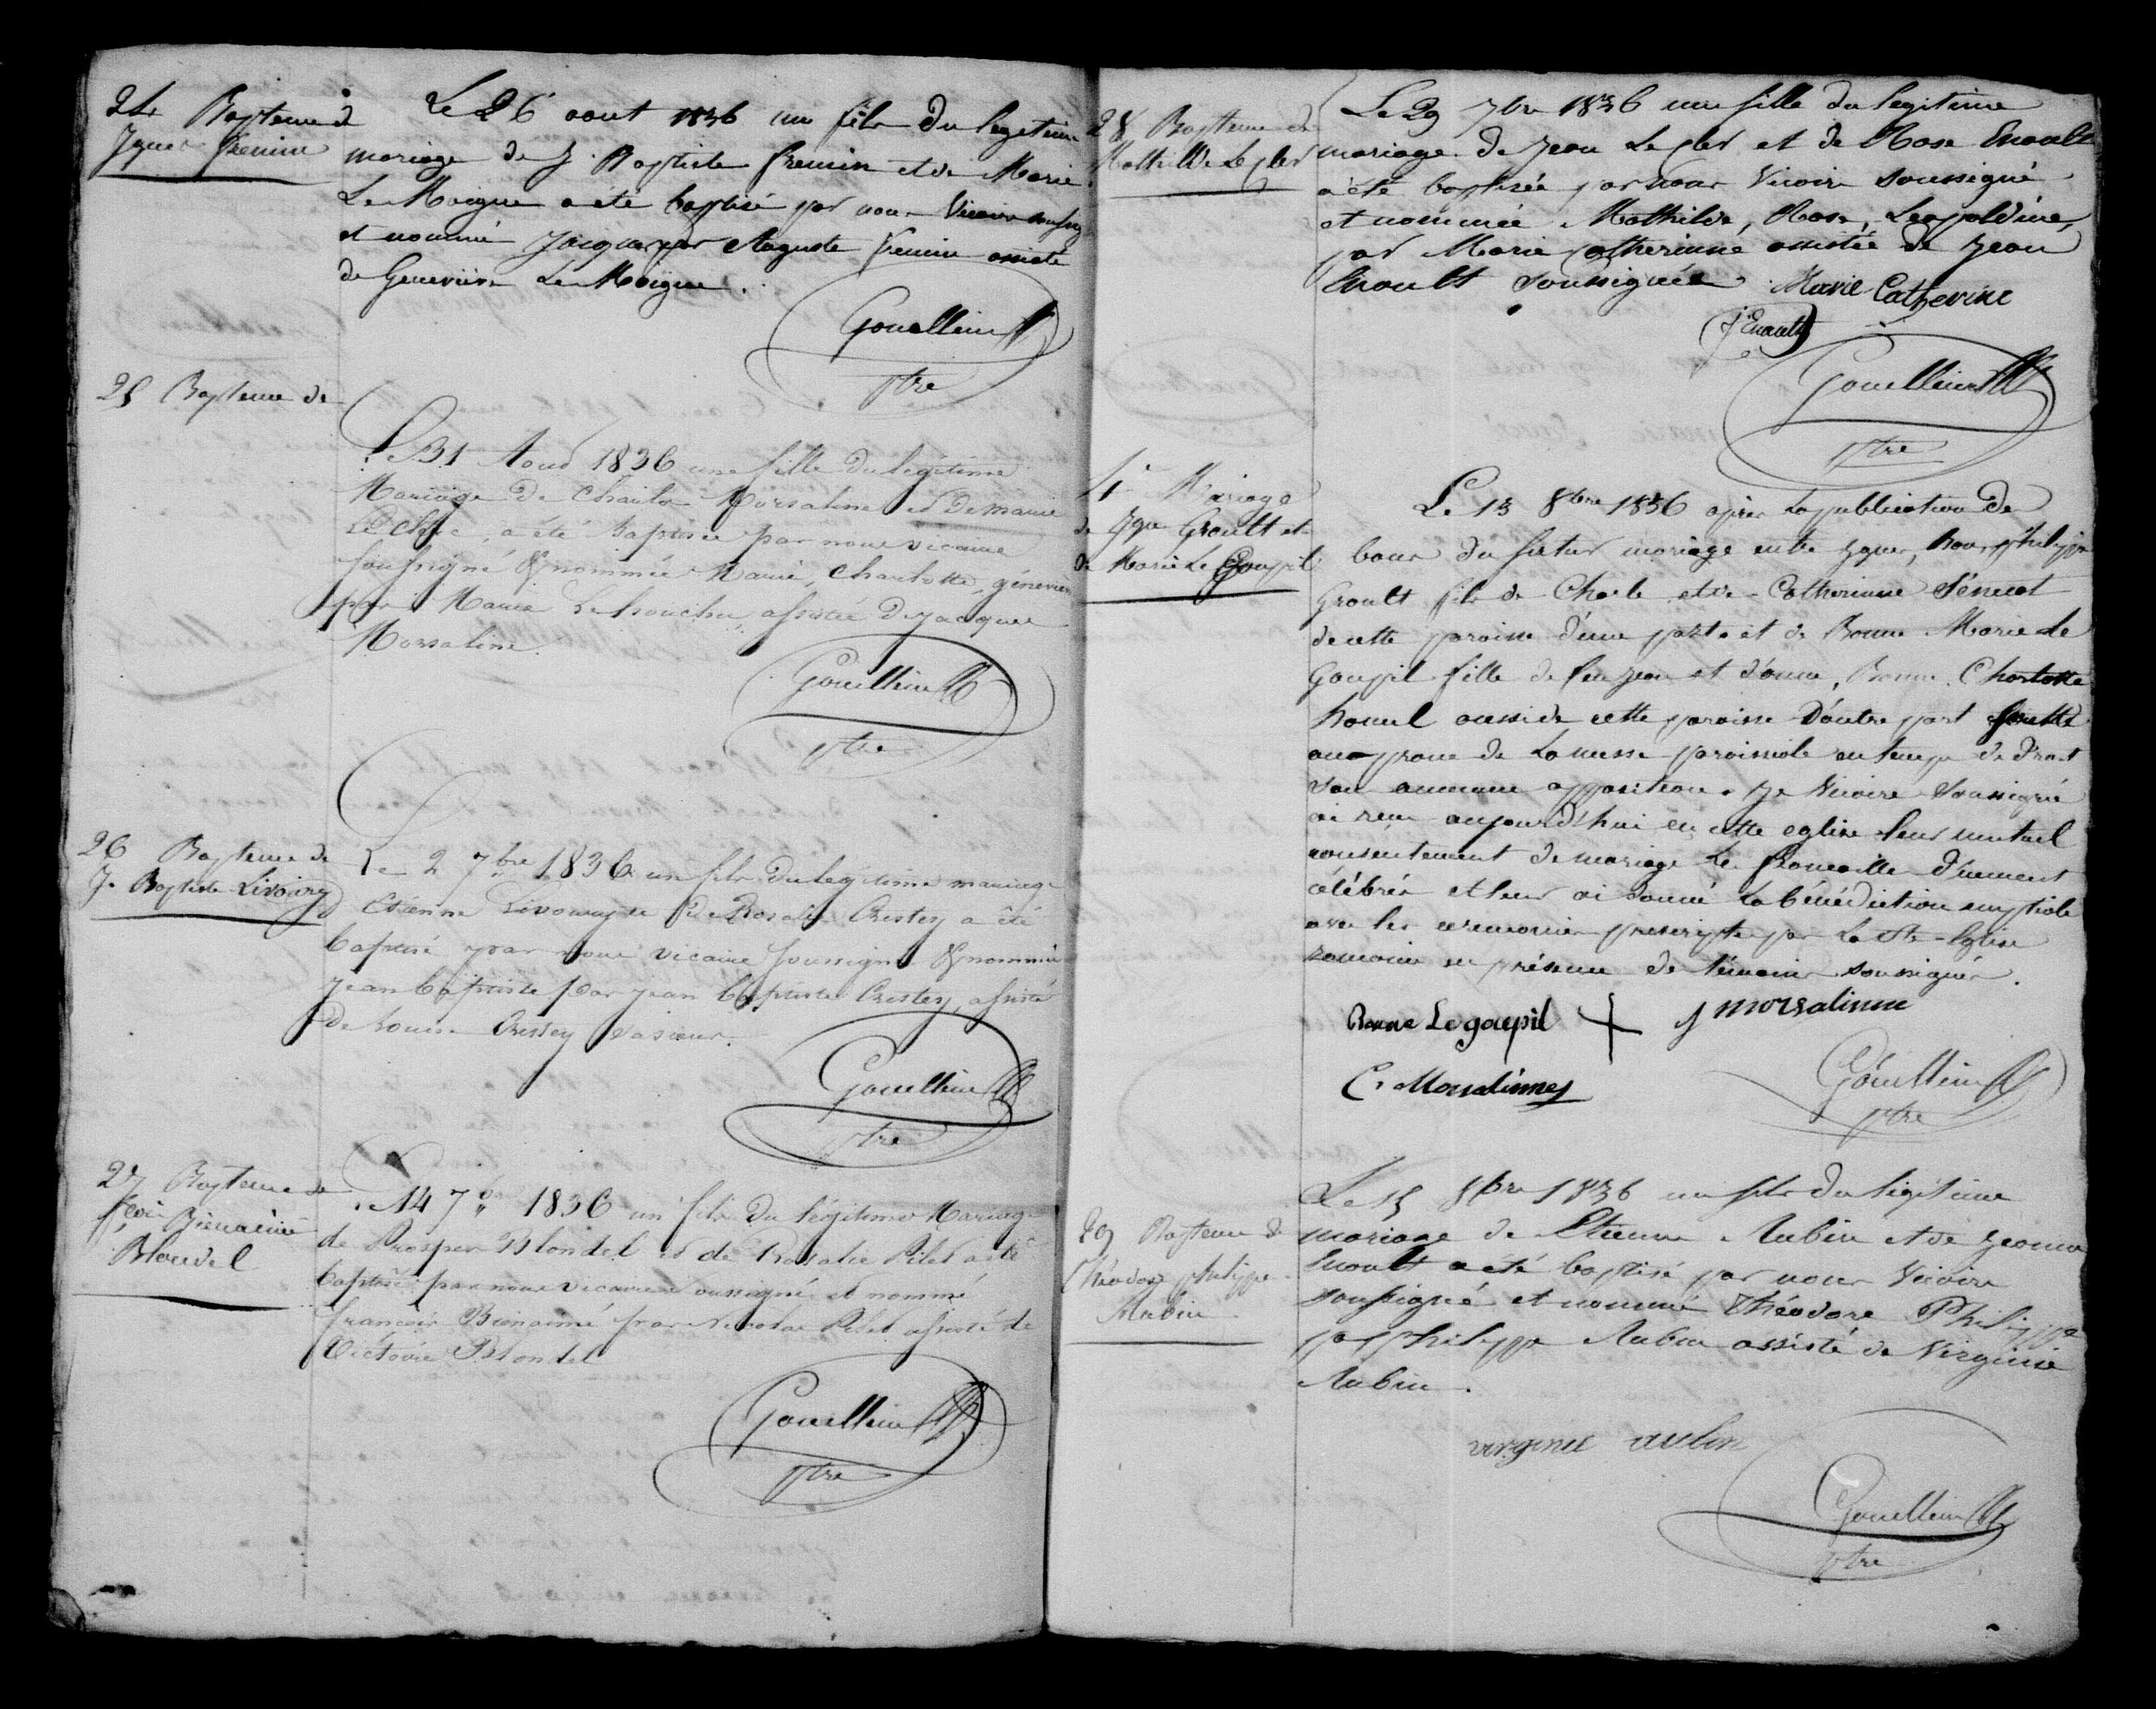 24 Bapteme d
Jque fremin
Le 26 aout 1836 un fils du legetime
mariage de J. Baptiste fremin et de Marie
Le Moigne a été baptisé par nous Vicaire
et nommé Jacques par Auguste fremin assisté
de Geneviève Le Moigne.
Gouellain
ptre
25 Bapteme de
Le 31 Aout 1836 une fille du legitime
Mariage de Charles Morsaline et de marie
a été Baptisée par nous vicaire
soussigné & nommée Marie, Charlotte, géneviev
par Marie assistée De jacques
Morsaline.
Gouellain
ptre
26 Bapteme de
J. Baptiste Livoiry
Le 2 7bre 1836 un fils du legitime mariage
Etienne et de Rosalie Crestey a été
baptisé par nous vicaire soussigné & nommé
jean baptiste par jean baptiste Crestey, assisté
de Louise Crestey sa sœur.
Gouellain
ptre
27 Bapteme de
fcois Bienaimé
Blondel
Le 14 7b 1836 un fils du légitime Mariage
de Prosper Blondel et de Rosalie Pilet a été
baptisé par nous vicaire soussigné et nommé
françois Bienaimé par nicolas Pilet assisté de
Victoire Blondel
Gouellain
ptre
28 Bapteme de
Mathilde Le
Le 29 7bre 1836 une fille du legitime
mariage de Jean Le et de Rose Enault
a été baptisée par nous Vicaire soussigné
et nommée Mathilde, Rose, Leopoldine,
par Marie Catherinne, assistée de Jean
Enault soussignée Marie Catherine
J Enault
Gouellain
ptre
4e Mariage
de Jque Groult et
de Marie Le Goupil
Le 13 8bre 1836 après la publication de
bans du futur mariage entre Jques, Bon, philippe
Groult fils de Charle et de Catherinne
de cette paroisse d'une part et de Bonne Marie Le
Goupil fille de feu Jean et d'anne, Bonne Charlotte
aussi de cette paroisse D'autre part
au prone de la messe paroissiale en temps de Droit
san aucunne opposition. Je Vicaire soussigné
ai reçu aujourd'hui en cette eglise leur mutuel
consentement de mariage Le fiancaille d'uement
célébrées et leur ai donné la bénédiction nuptiale
avec les ceremonies prescripte par La Ste Eglise
romaine en présence de témoins soussignés.
Bonne Legoupil + J morsalinne
C. Morsalinnes
Gouellain
ptre
29 Bapteme de
Théodore philippe
Aubin
Le 15 8bre 1836 un fils du legitime
mariage de Etienne Aubin et de Jeanne
Enault a été baptisé par nous Vicaire
soussigné et nommé Théodore Philippe
par philippe Aubin assisté de Virginie
Aubin.
virginie aubin
Gouellain
ptre